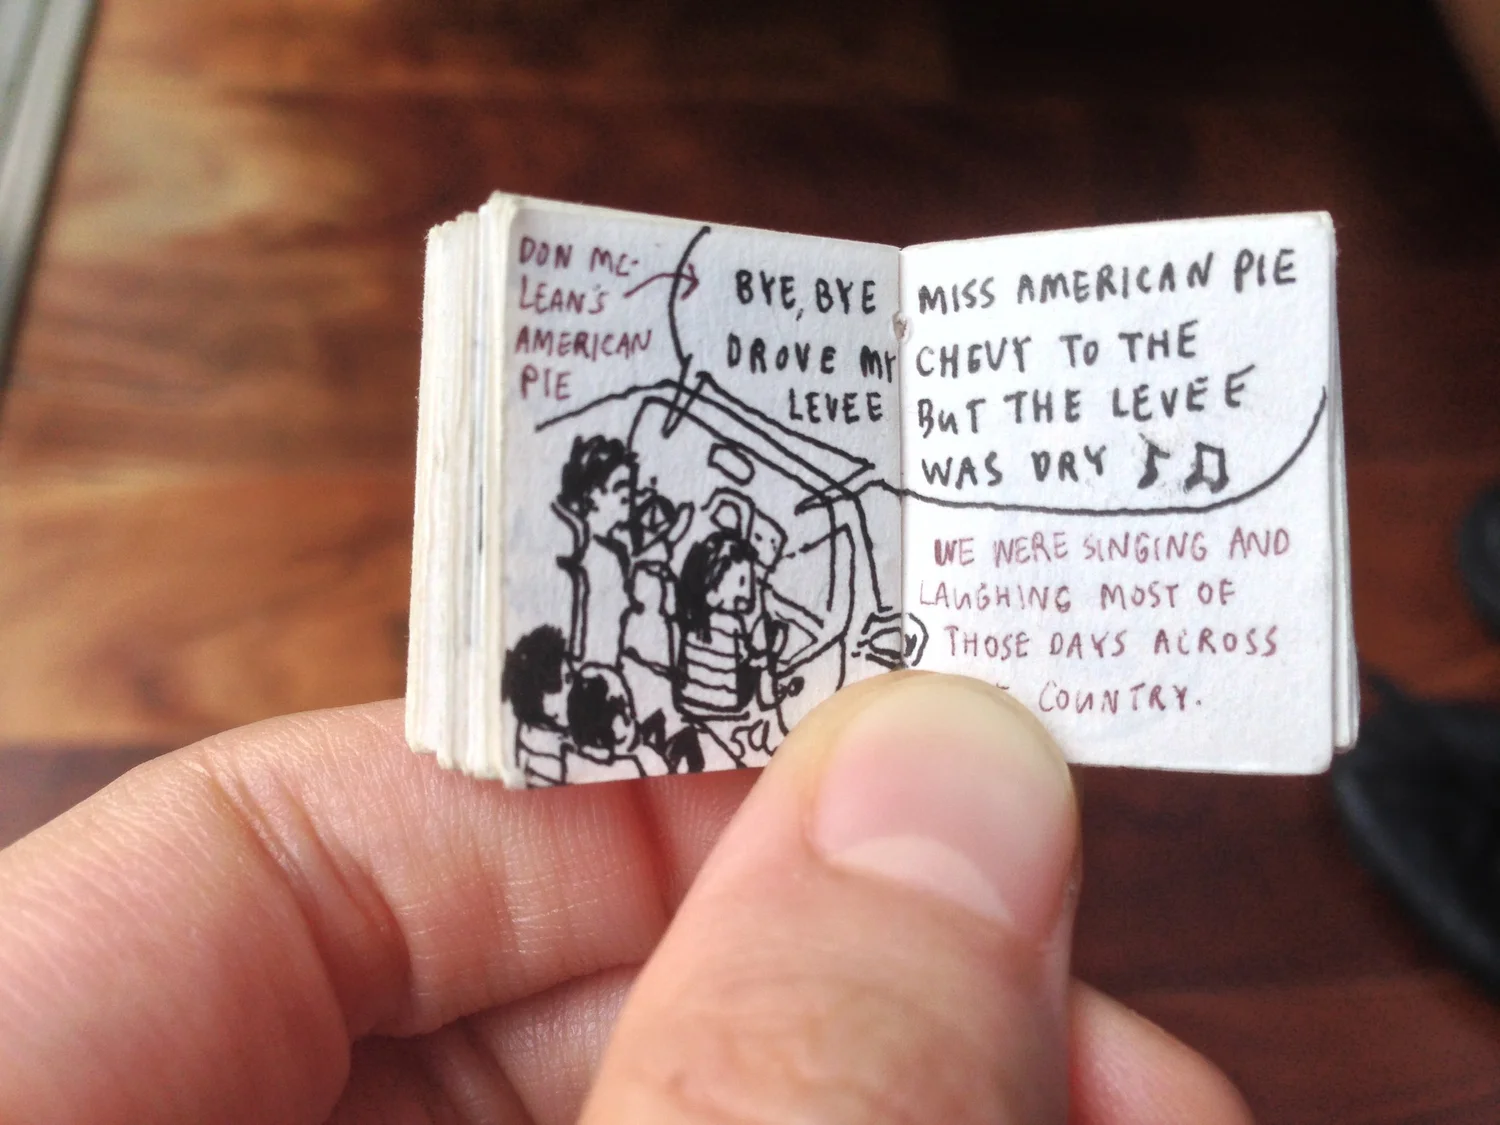 DON MC-
LEAN'S
AMERICAN
PIE
BYE, BYE MISS AMERICAN PIE
DROVE MY CHEVY TO THE
LEVEE BUT THE LEVEE
WAS DRY
WE WERE SINGING AND
LAUGHING MOST OF
THOSE DAYS ACROSS
COUNTRY.